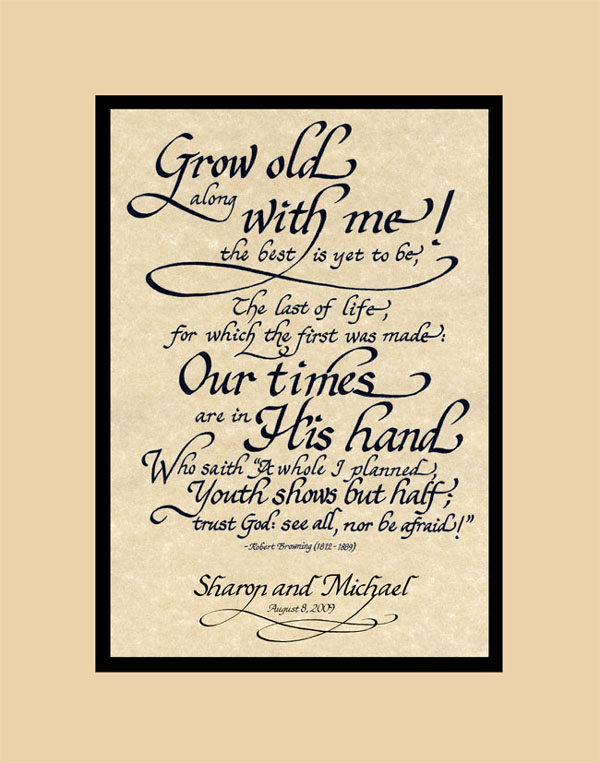 Grow old
along
with me!
the best is yet to be,
The last of life,
for which the first was made:
Our times
are in His hand
Who saith "A whole I planned,
Youth shows but half;
trust God: see all, nor be afraid!"
-Robert Browning (1812-1889)
Sharon and Michael
August 8, 2009